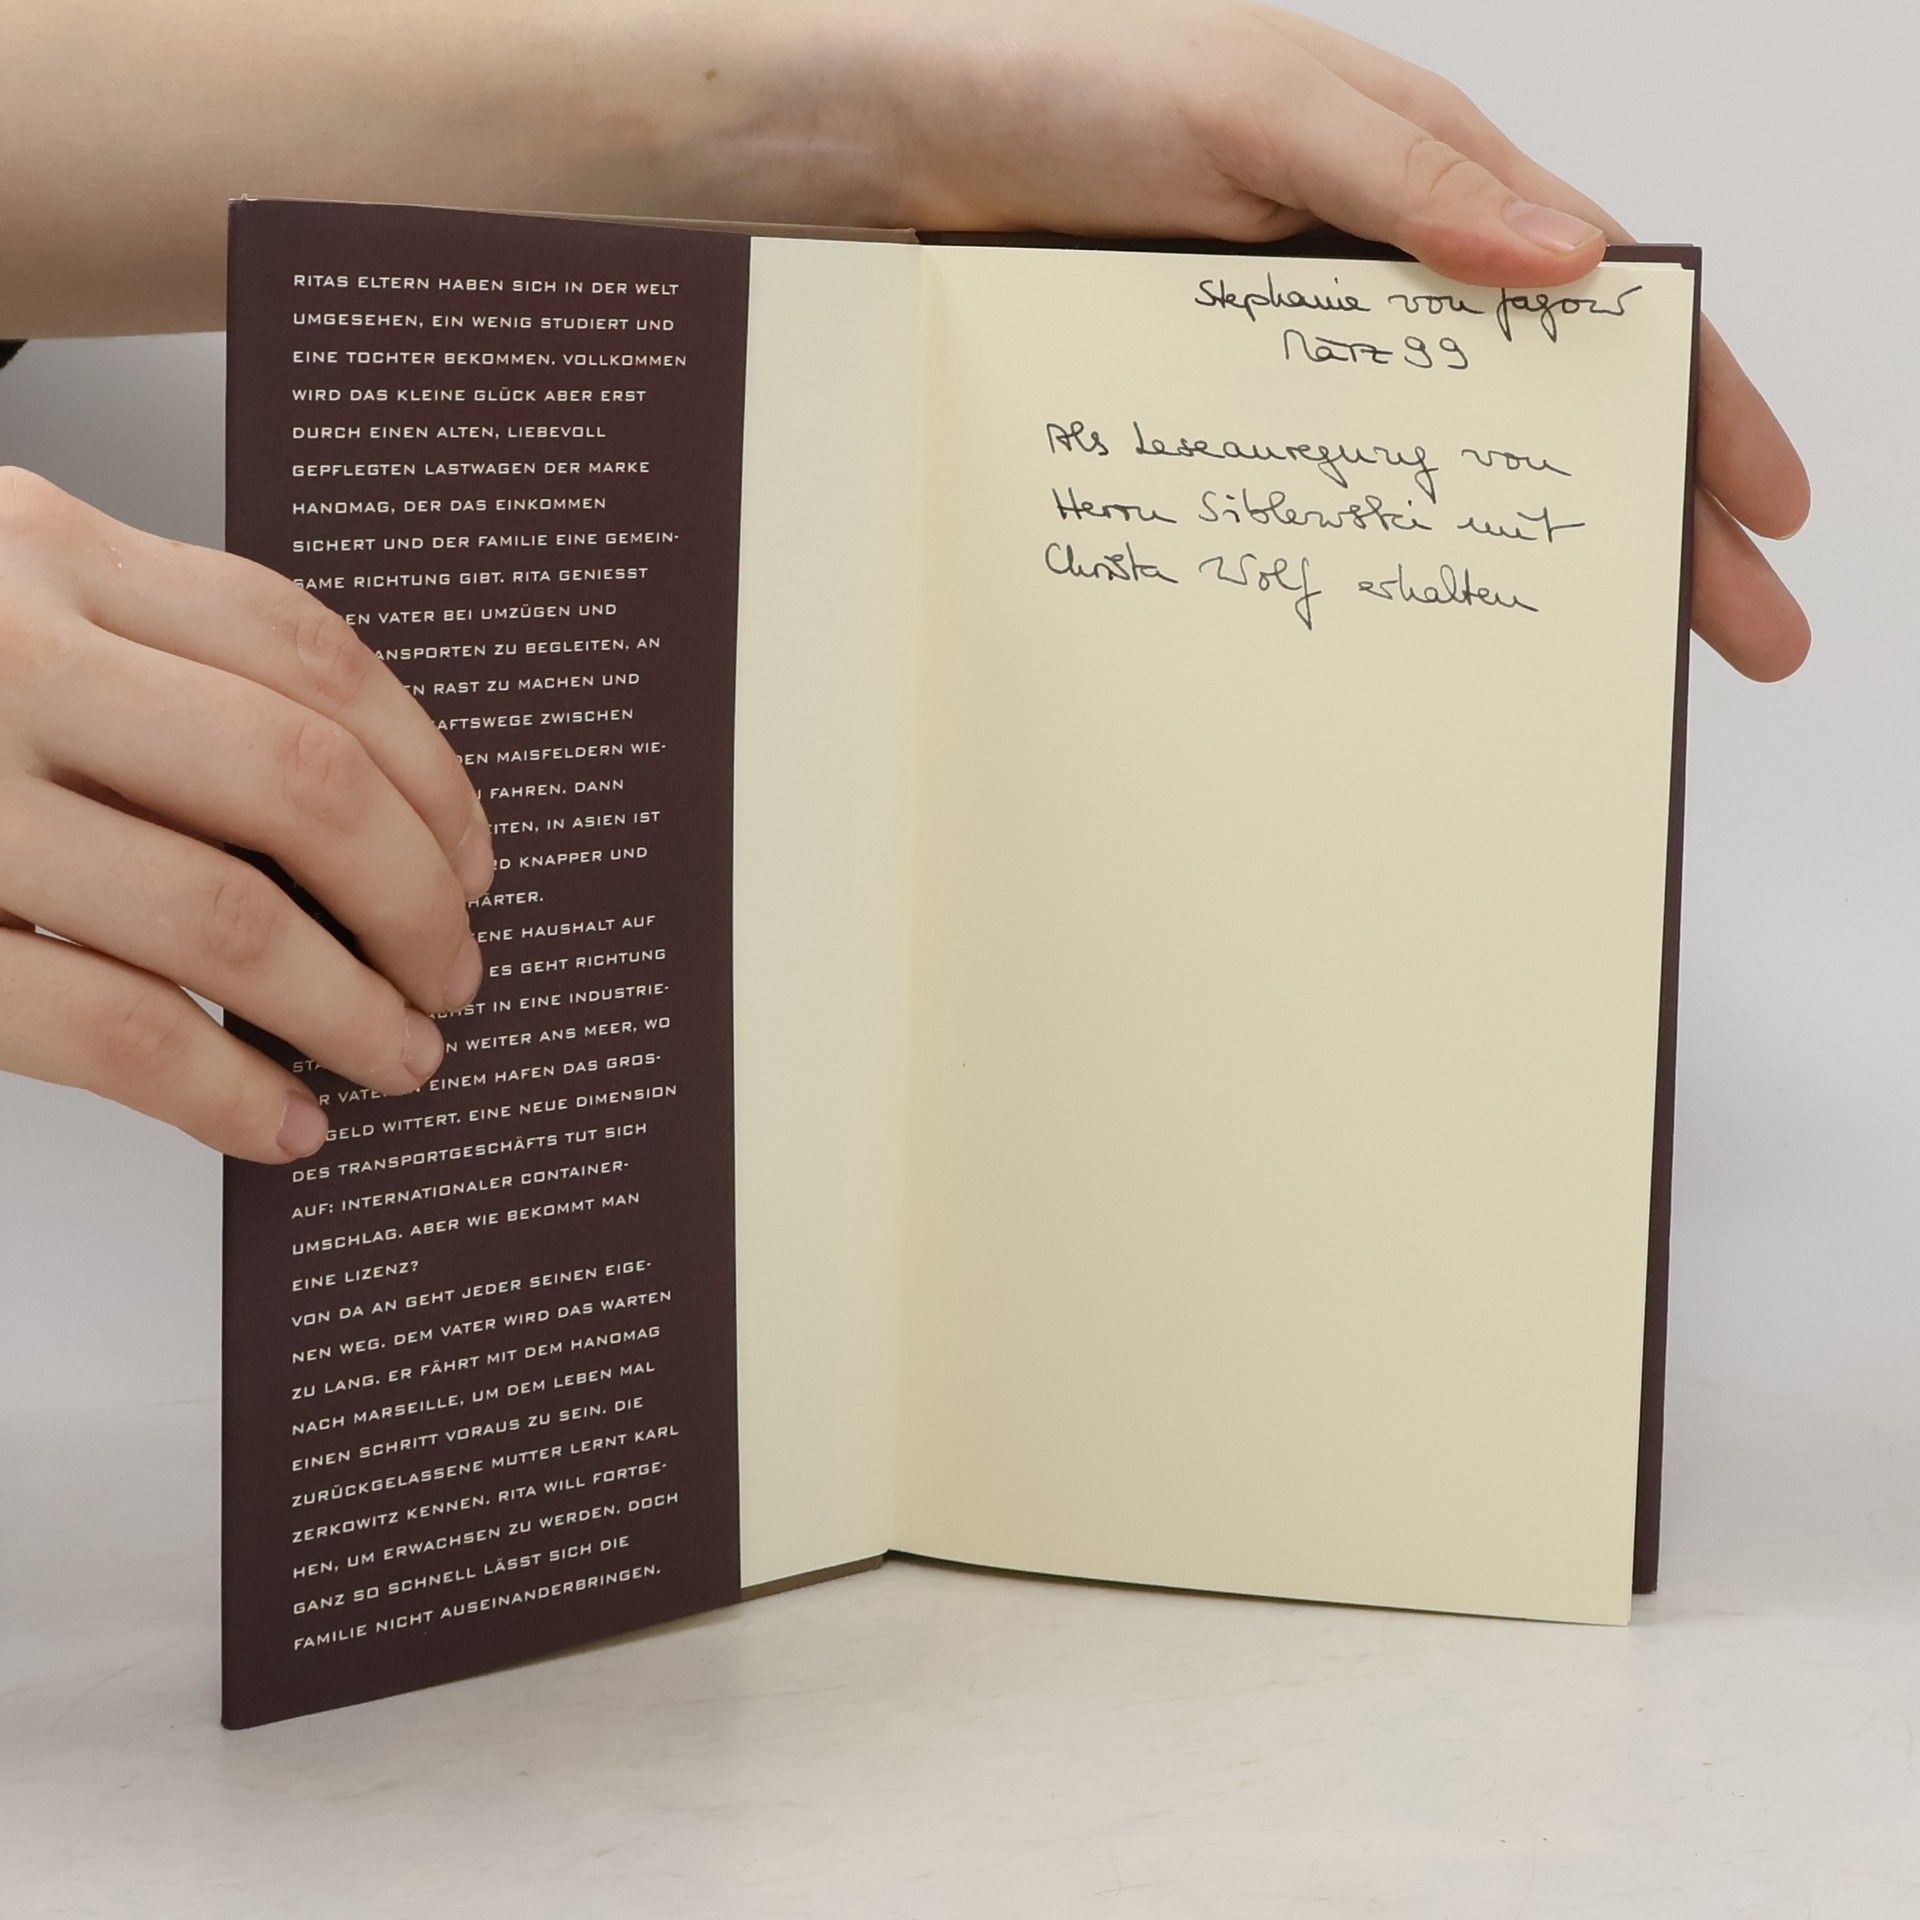 RITAS ELTERN HABEN SICH IN DER WELT
UMGESEHEN, EIN WENIG STUDIERT UND
EINE TOCHTER BEKOMMEN. VOLLKOMMEN
WIRD DAS KLEINE GLÜCK ABER ERST
DURCH EINEN ALTEN, LIEBEVOLL
GEPFLEGTEN LASTWAGEN DER MARKE
HANOMAG, DER DAS EINKOMMEN
SICHERT UND DER FAMILIE EINE GEMEIN-
SAME RICHTUNG GIBT. RITA GENIESST
EN VATER BEI UMZÜGEN UND
ANSPORTEN ZU BEGLEITEN, AN
EN RAST ZU MACHEN UND
AFTSWEGE ZWISCHEN
DEN MAISFELDERN WIE-
FAHREN. DANN
EITEN, IN ASIEN IST
RD KNAPPER UND
HÄRTER.
ENE HAUSHALT AUF
ES GEHT RICHTUNG
CHST IN EINE INDUSTRIE-
STA N WEITER ANS MEER, WO
R VATER IN EINEM HAFEN DAS GROS-
GELD WITTERT. EINE NEUE DIMENSION
DES TRANSPORTGESCHÄFTS TUT SICH
AUF: INTERNATIONALER CONTAINER-
UMSCHLAG. ABER WIE BEKOMMT MAN
EINE LIZENZ?
VON DA AN GEHT JEDER SEINEN EIGE-
NEN WEG. DEM VATER WIRD DAS WARTEN
ZU LANG. ER FÄHRT MIT DEM HANOMAG
NACH MARSEILLE, UM DEM LEBEN MAL
EINEN SCHRITT VORAUS ZU SEIN. DIE
ZURÜCKGELASSENE MUTTER LERNT KARL
ZERKOWITZ KENNEN. RITA WILL FORTGE-
HEN, UM ERWACHSEN ZU WERDEN. DOCH
GANZ SO SCHNELL LÄSST SICH DIE
FAMILIE NICHT AUSEINANDERBRINGEN.
Stephanie von Jagow
März 99
Als Leseanregung von
Herrn Siblewski mit
Christa Wolf erhalten